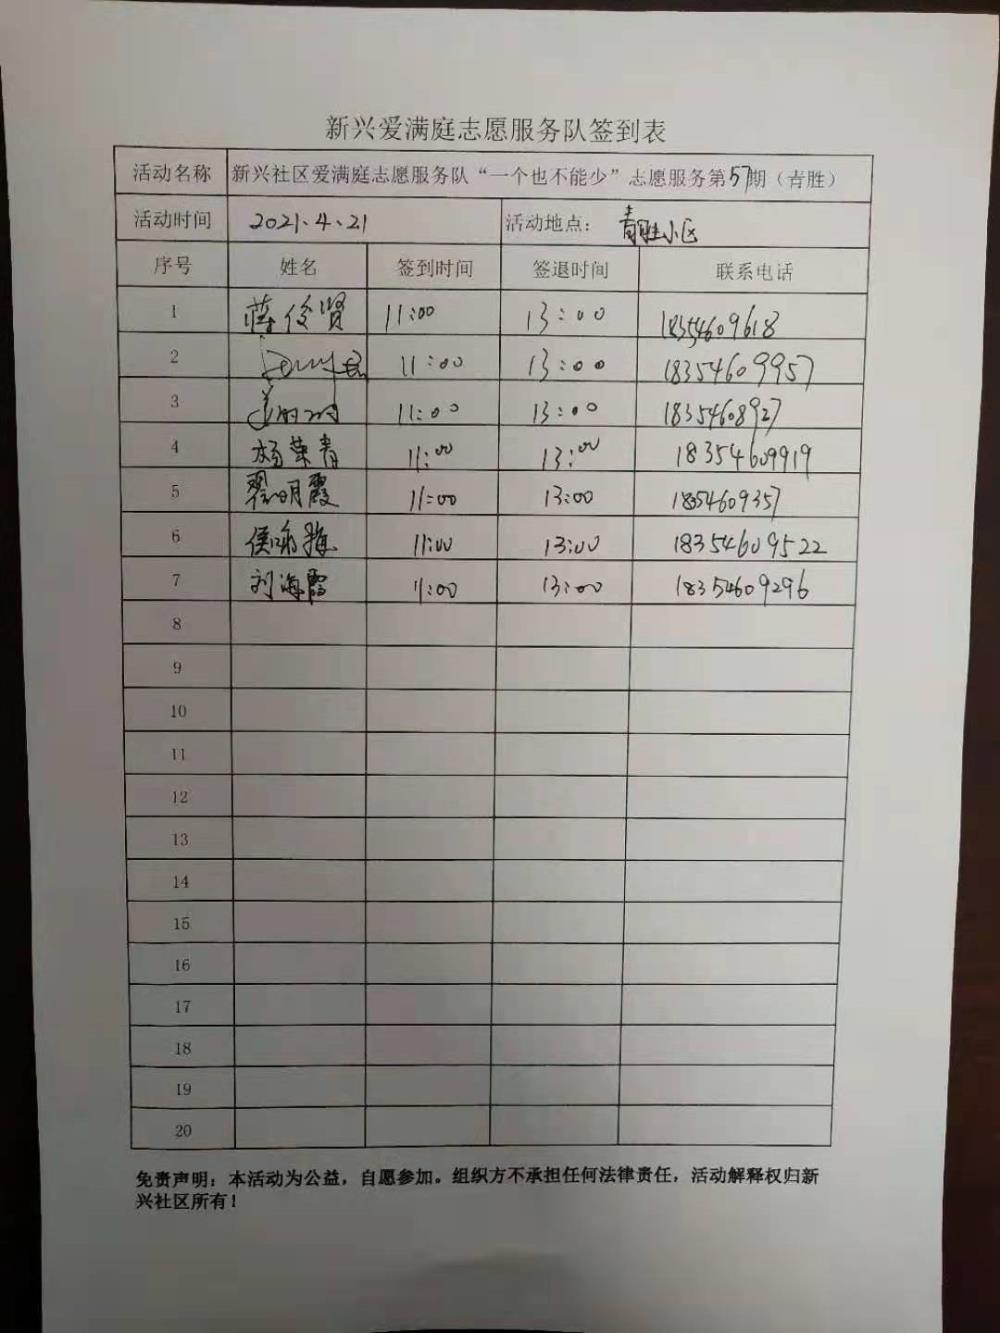 新兴爱满庭志愿服务队签到表
活动名称 新兴社区爱满庭志愿服务队“一个也不能少”志愿服务第57期（青胜）
活动时间 2021、4、21 活动地点： 青胜小区
序号 姓名 签到时间 签退时间 联系电话
1 蒋俊贤 11:00 13:00 18354609618
2 11:00 13:00 18354609957
3 11:00 13:00 18354608927
4 杨荣青 11:00 13:00 18354609919
5 翟明霞 11:00 13:00 1854609357
6 侯咏梅 11:00 13:00 18354609522
7 刘海霞 11:00 13:00 18354609296
8
9
10
11
12
13
14
15
16
17
18
19
20
免责声明：本活动为公益，自愿参加。组织方不承担任何法律责任，活动解释权归新
兴社区所有！